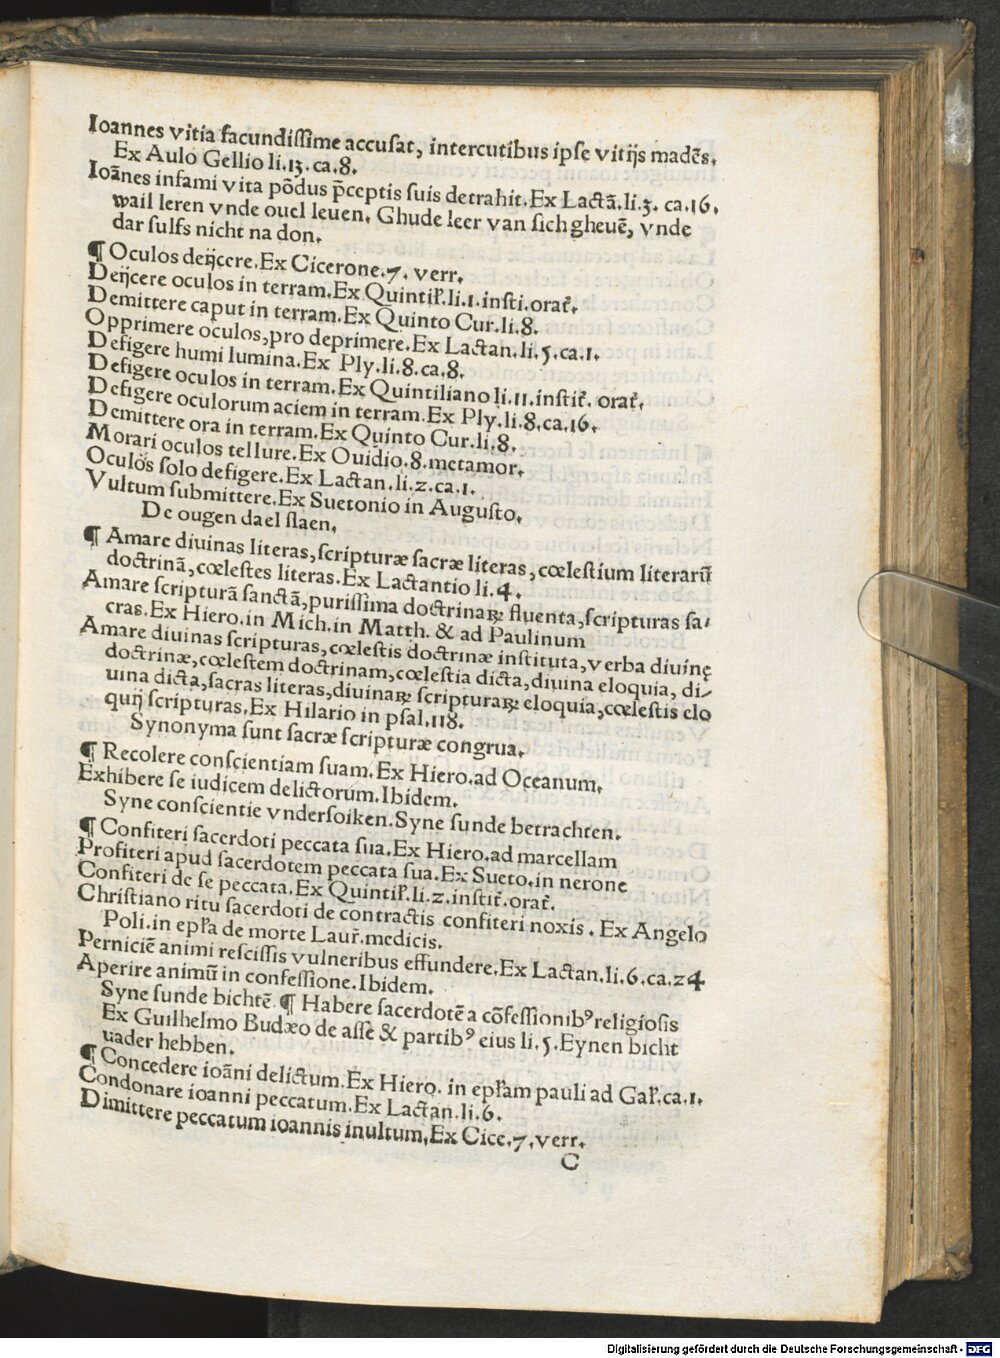 Ioannes vitia facundissime accusat, intercutibus ipse vitijs madēs.
Ex Aulo Gellio li.13.ca.8.
Ioānes infami vita põdus p̄ceptis suis detrahit.Ex Lactā.li.3. ca.16.
wail leren vnde ouel leuen. Ghude leer van sich gheuē, vnde
dar sulfs nicht na don.
¶ Oculos deijcere.Ex Cicerone.7. verr.
Deijcere oculos in terram.Ex Quintiľ.li.1.insti.orať.
Demittere caput in terram.Ex Quinto Cur.li.8.
Opprimere oculos,pro deprimere.Ex Lactan.li.5.ca.1.
Defigere humi lumina.Ex Ply.li.8.ca.8.
Defigere oculos in terram.Ex Quintiliano li.11.instiť. orať.
Defigere oculorum aciem in terram.Ex Ply.li.8.ca.16.
Demittere ora in terram.Ex Quinto Cur.li.8.
Morari oculos tellure.Ex Ouidio.8.metamor.
Oculos solo defigere.Ex Lactan.li.2.ca.1.
Vultum submittere.Ex Suetonio in Augusto.
De ougen dael slaen.
¶ Amare diuinas literas,scripturæ sacræ literas,cœlestium literarū
doctrinā,cœlestes literas.Ex Lactantio li.4.
Amare scripturā sanctā,purissima doctrinaꝝ fluenta,scripturas sa-
cras.Ex Hiero.in Mich.in Matth. & ad Paulinum
Amare diuinas scripturas,cœlestis doctrinæ instituta,verba diuinę
doctrinæ,cœlestem doctrinam,cœlestia dicta,diuina eloquia, di-
uina dicta,sacras literas,diuinaꝝ scripturaꝝ eloquia,cœlestis elo
quij scripturas.Ex Hilario in psal.118.
Synonyma sunt sacræ scripturæ congrua.
¶ Recolere conscientiam suam.Ex Hiero.ad Oceanum.
Exhibere se iudicem delictorum.Ibidem.
Syne conscientie vndersoiken.Syne sunde betrachten.
¶ Confiteri sacerdoti peccata sua.Ex Hiero.ad marcellam
Profiteri apud sacerdotem peccata sua.Ex Sueto.in nerone
Confiteri de se peccata.Ex Quintiľ.li.2.instiť.orať.
Christiano ritu sacerdoti de contractis confiteri noxis. Ex Angelo
Poli.in epľa de morte Lauř.medicis.
Perniciē animi rescissis vulneribus effundere.Ex Lactan.li.6.ca.24
Aperire animū in confessione.Ibidem.
Syne sunde bichtē ¶ Habere sacerdotē a cōfessionibꝰ religiosis
Ex Guilhelmo Budæo de asse & partibꝰ eius li.5.Eynen bicht
uader hebben.
¶ Concedere ioāni delictum.Ex Hiero. in epľam pauli ad Gaľ.ca.1.
Condonare ioanni peccatum.Ex Lactan.li.6.
Dimittere peccatum ioannis inultum.Ex Cice.7.verr.
C
Digitalisierung gefördert durch die Deutsche Forschungsgemeinschaft - DFG